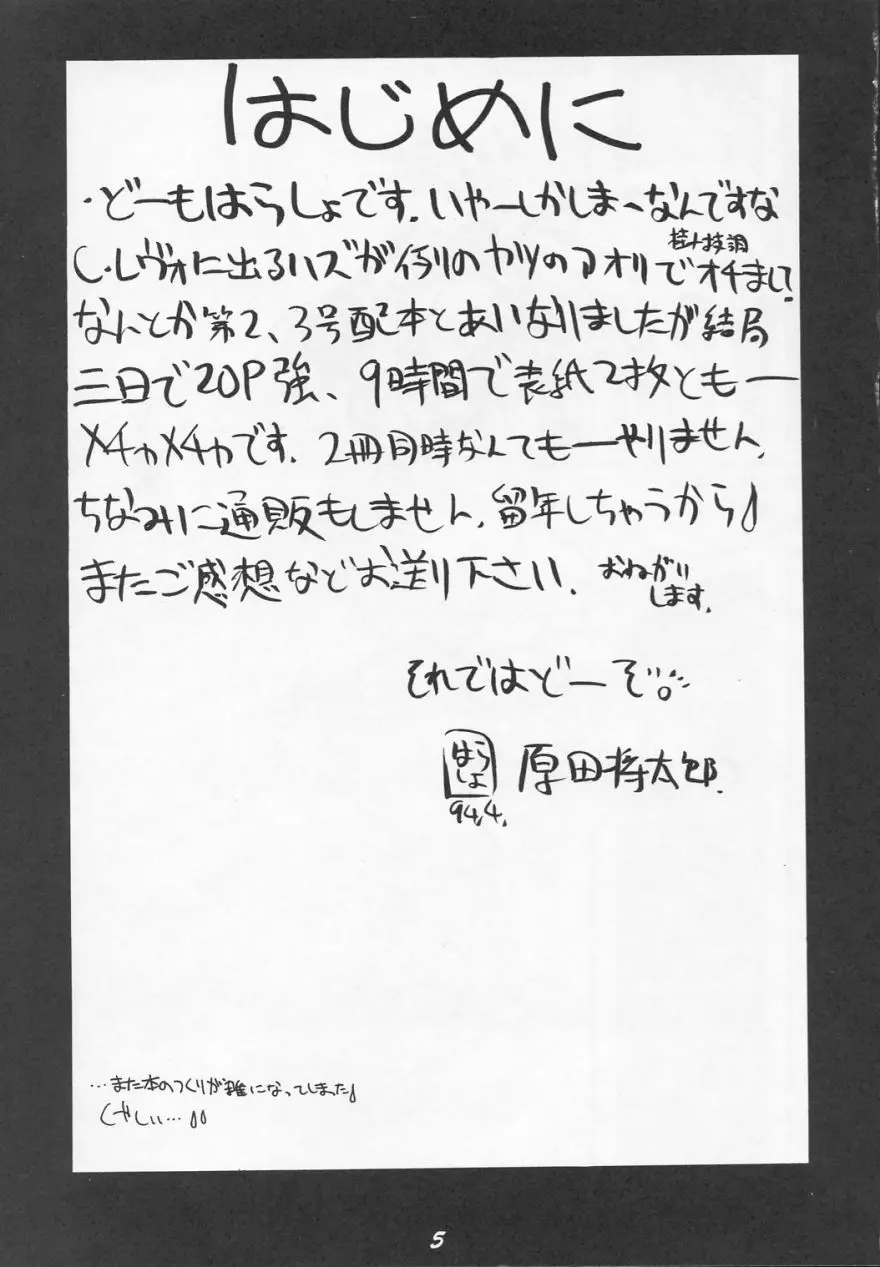 はじめに
・どーもはらしょです。いやーしかしまーなんですな
C・レヴォに出るハズが例のヤツのアオリでオチまして
なんとか第2、3号配本とあいなりましたが結局
三日で20P強、9時間で表紙2枚ともー
メチャメチャです。2冊同時なんてもーやりません。
ちなみに通販もしません。留年しちゃうから
またご感想などお送り下さい。おねがい
します。
それではどーぞ。
はらしょ
原田将太郎.
94.4.
…また本のつくりが雑になってしまった
くやしい…
5